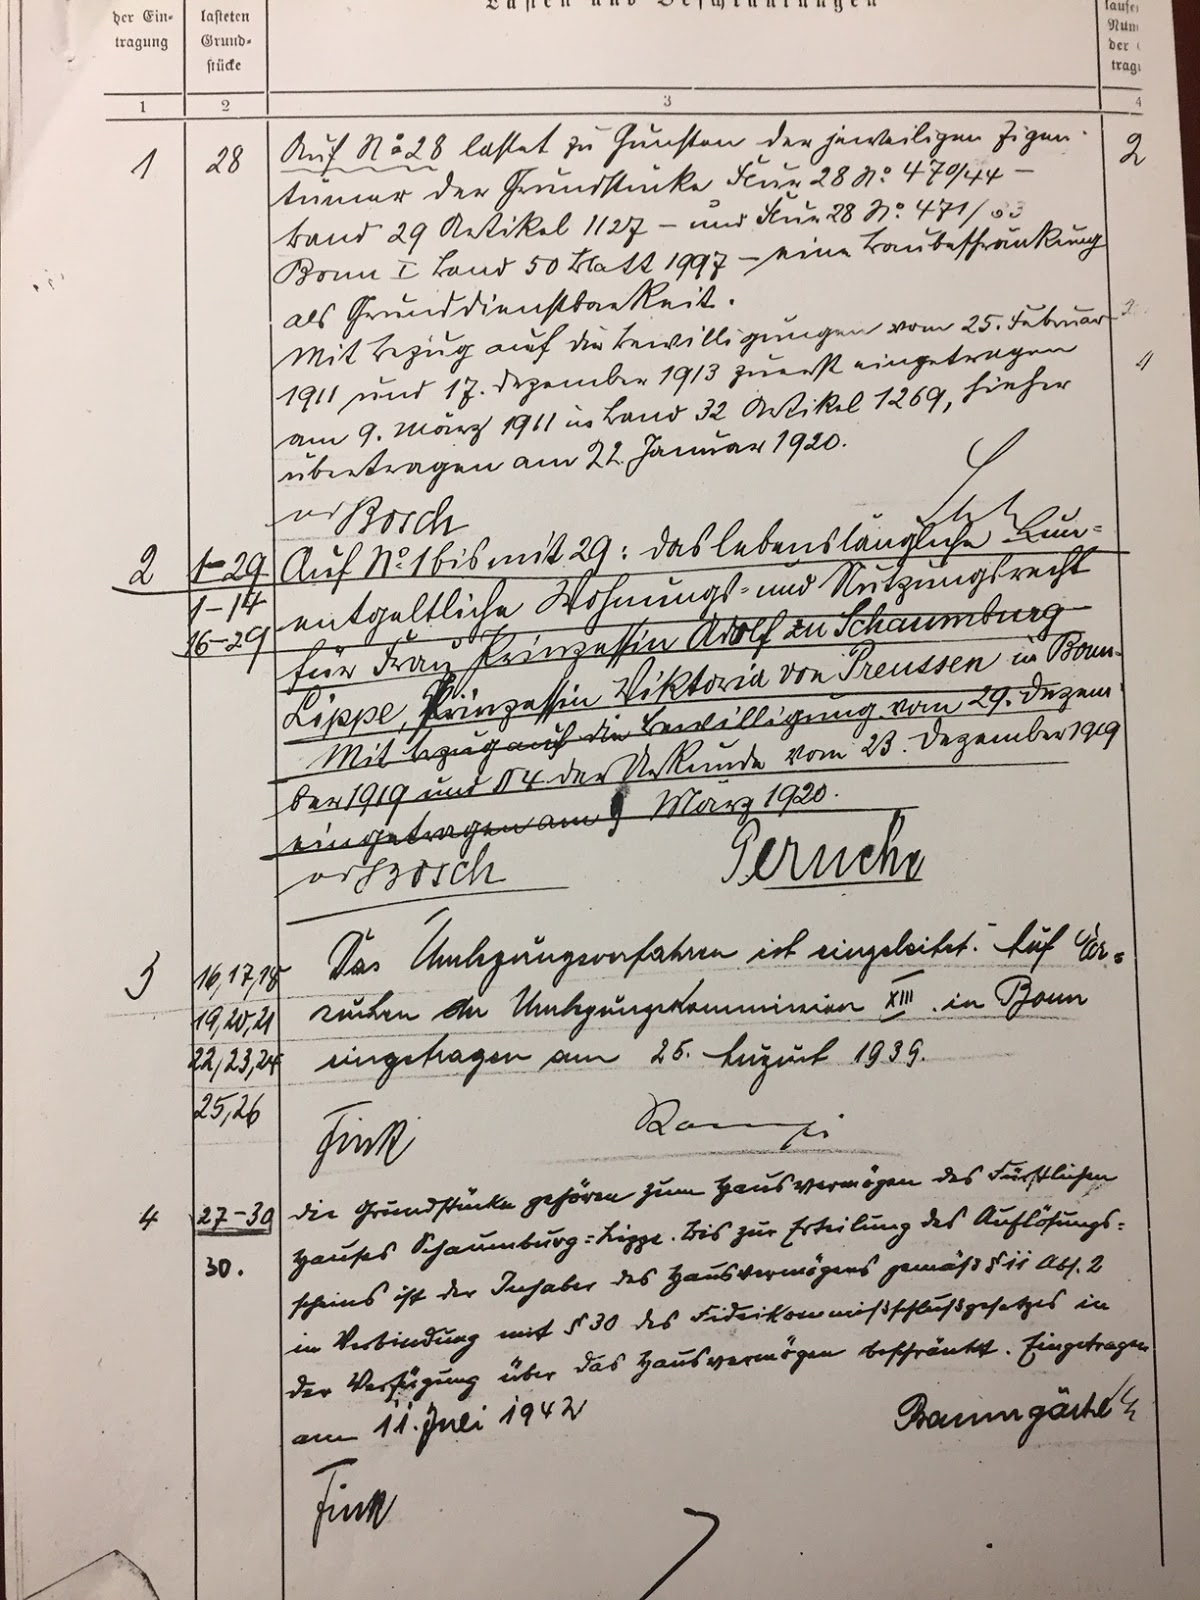 der Ein-
tragung
lasteten
Grund-
stücke
Lasten und Beschränkungen
laufe
Num
der
trag
1
2
3
4
1
28
Auf No 28 lastet zu Gunsten der jeweiligen Eigen-
tümer der Grundstücke Flur 28 No 470/44 –
Band 29 Artikel 1127 – und Flur 28 No 471/
Bonn I Band 50 Blatt 1997 – eine Baubeschränkung
als Grunddienstbarkeit.
Mit Bezug auf die Bewilligungen vom 25. Februar
1911 und 17. Dezember 1913 zuerst eingetragen
am 9. März 1911 in Band 32 Artikel 1269, hieher
übertragen am 22. Januar 1920.
Bosch
2
2
1–29
1–14
16–29
Auf No 1 bis mit 29: das lebenslängliche un-
entgeltliche Wohnungs- und Nutzungsrecht
für Frau Prinzessin Adolf zu Schaumburg-
Lippe, Prinzessin Viktoria von Preussen in Bonn.
Mit Bezug auf die Bewilligung vom 29. Dezem-
ber 1919 und § 4 der Urkunde vom 23. Dezember 1919
eingetragen am 9 März 1920.
Bosch
3
16,17,18
19,20,21
22,23,24
25,26
Das Umlegungsverfahren ist eingeleitet. Auf Er-
suchen der Umlegungskommission XIII. in Bonn
eingetragen am 25. August 1939.
Fink
4
27–30
30.
Die Grundstücke gehören zum Hausvermögen des Fürstlichen
Hauses Schaumburg-Lippe. Bis zur Erteilung des Auflösungs-
scheins ist der Inhaber des Hausvermögens gemäß § 11 Abs. 2
in Verbindung mit § 30 des Fideikommißschlußgesetzes in
der Verfügung über das Hausvermögen beschränkt. Eingetragen
am 11. Juli 1942
Fink